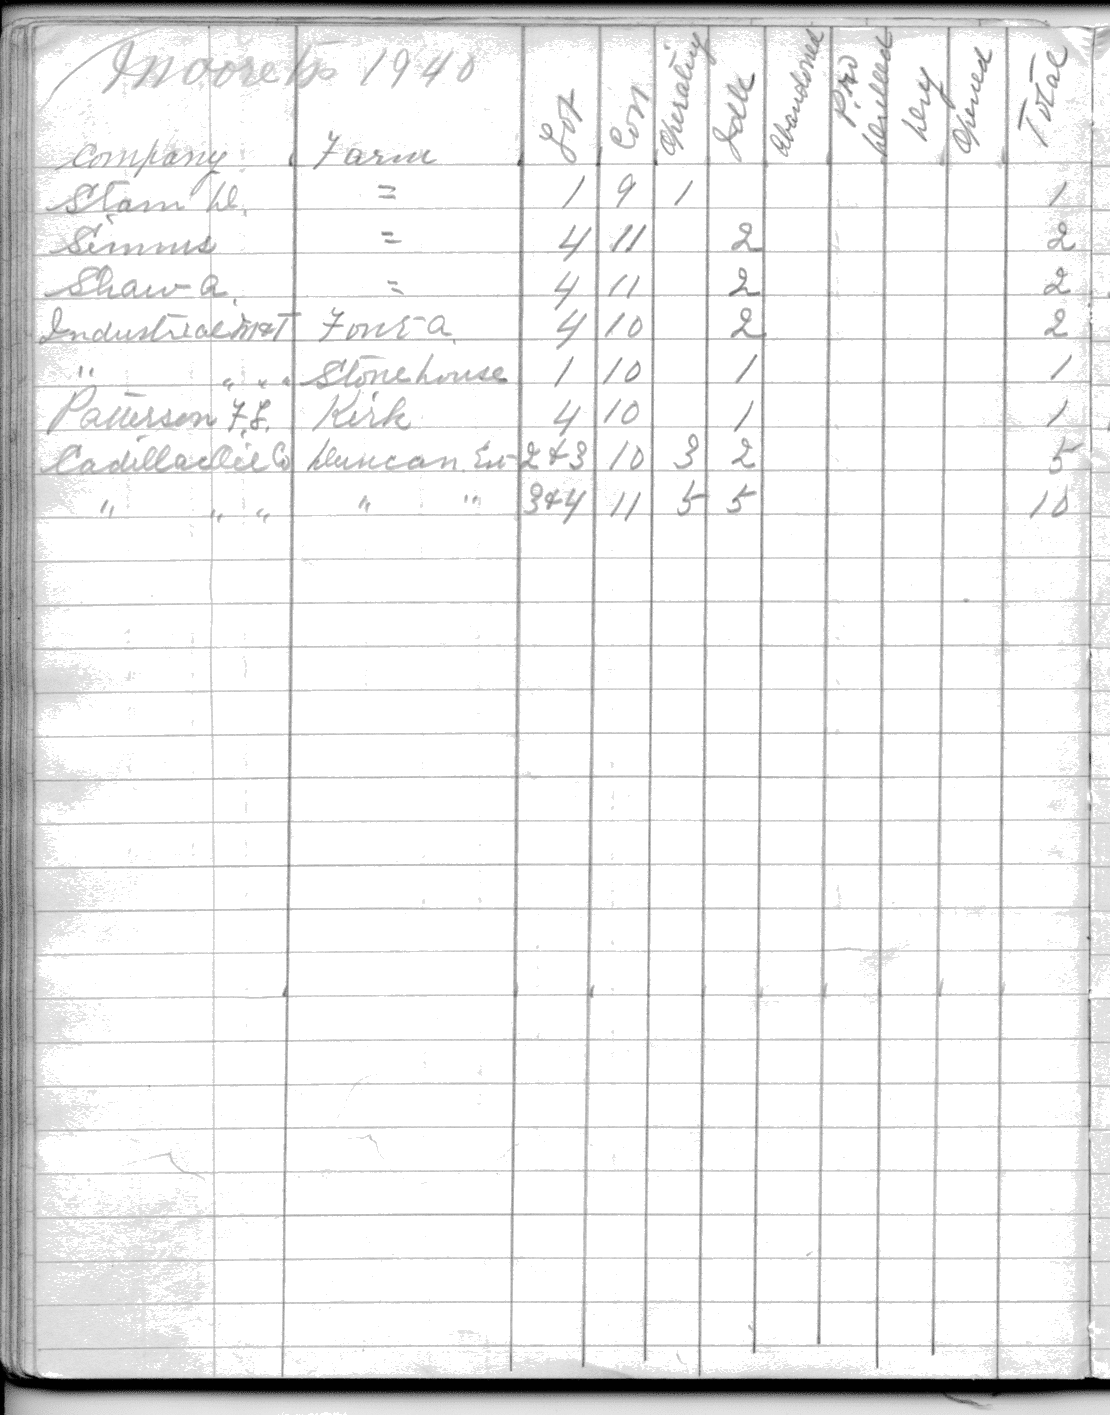 Moore Tp 1940
Company Farm Lot Con Operating Idle Abandoned Pro Drilled Dry Opened Total
Stam W. = 1 9 1 1
Simms = 4 11 2 2
Shaw A. = 4 11 2 2
Industrial M&T Font A. 4 10 2 2
" " " " Stonehouse 1 10 1 1
Patterson F.L. Kirk 4 10 1 1
Cadillac Oil Co Duncan Est 2 & 3 10 3 2 5
" " " " " 3 & 4 11 5 5 10